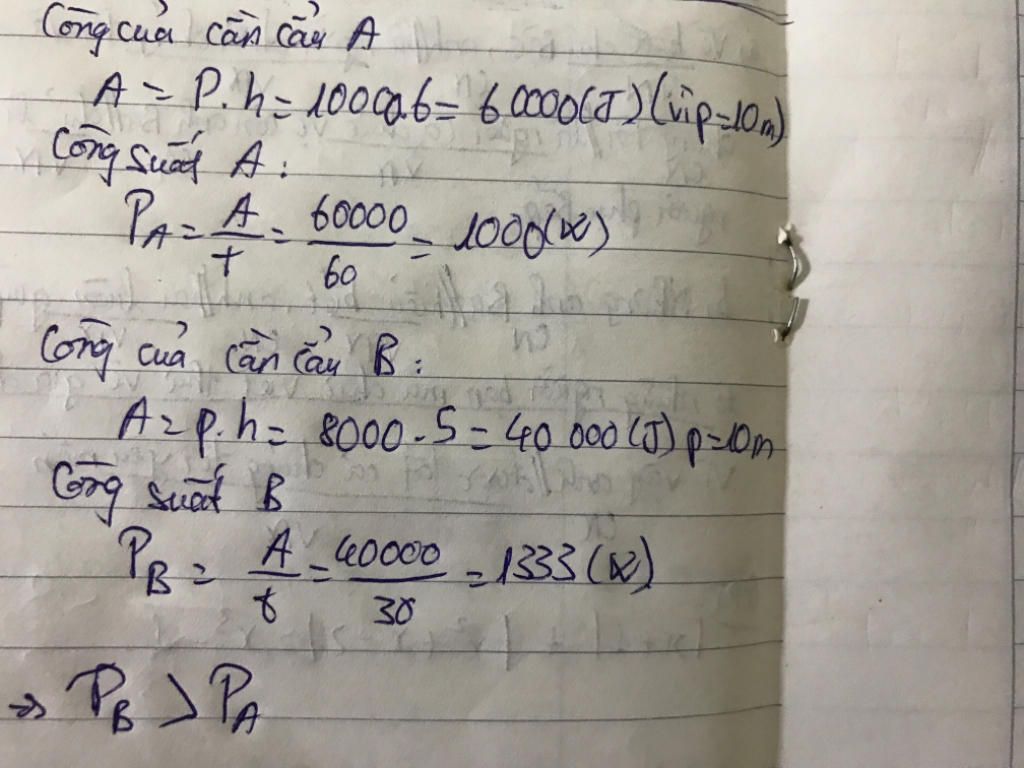 Công của cần cẩu A
A = P.h = 10000.6 = 60000(J) (vì p=10m)
Công suất A:
P_A = A/t = 60000/60 = 1000(W)
Công của cần cẩu B:
A = p.h = 8000.5 = 40 000 (J) p=10m
Công suất B
P_B = A/t = 40000/30 = 1333 (W)
=> P_B > P_A